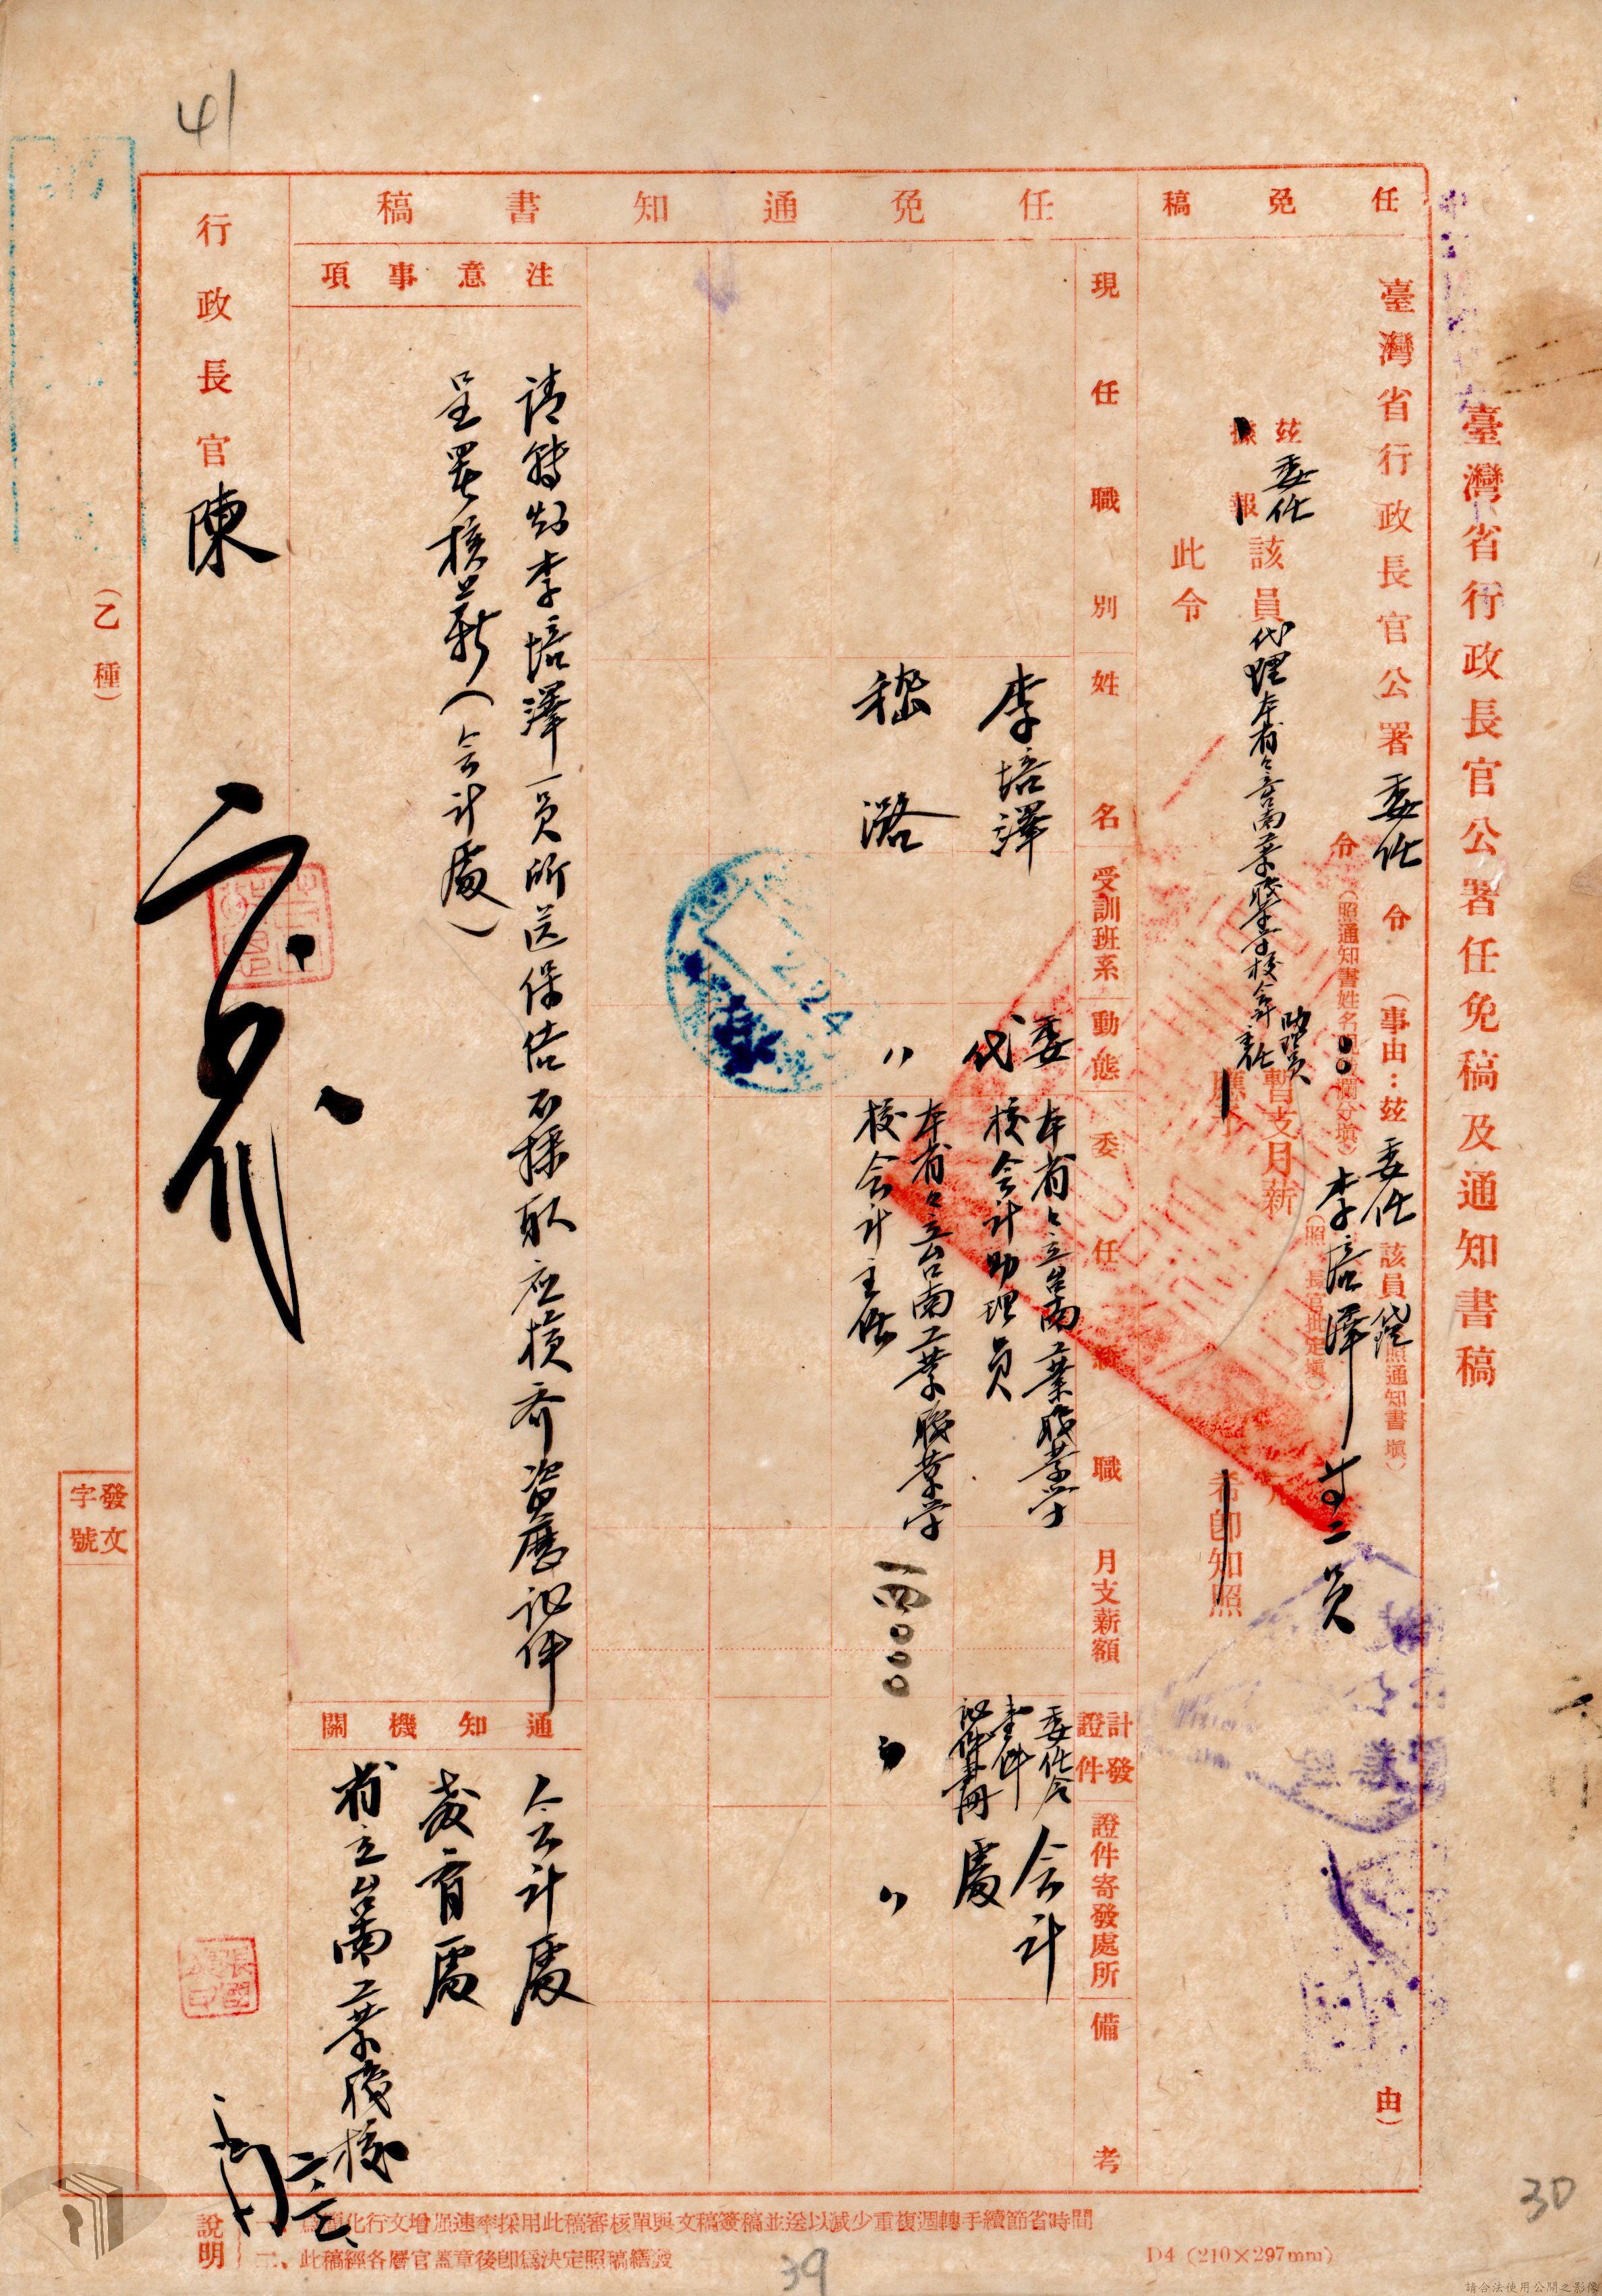 41
臺灣省行政長官公署任免稿及通知書稿
任免稿
臺灣省行政長官公署委任令(事由：茲委任該員代理照通知書填)由)
令(照通知書姓名欄分填)李培澤等二員
茲委任該員代理本省省立台南工業職業學校會計助理員主任暫支月薪(照長官批定填)元
據報應予希卽知照
此令
任免通知書稿
現任職別
姓名
受訓班系
動態
委任新職
月支薪額
計發證件
證件寄發處所
備考
李培澤
委代
本省省立台南工業職業学校会計助理員
委任令壹件
証件壹冊
会計處
嵇潞
〃
本省省立台南工業職業学校会計主任
一四〇〇〇
〃
〃
注意事項
请轉知李培澤一員所送保结不採取应檢齐資歷証件
呈署核薪(会计處)
通知機關
会计處
教育處
省立台南工業職校
行政長官陳
(乙種)
發文字號
說明
一、爲簡化行文增加速率採用此稿審核單與文稿簽稿並送以減少重複週轉手續節省時間
二、此稿經各層官蓋章後卽爲決定照稿繕發
D4 (210×297mm)
39
30
請合法使用公開之影像